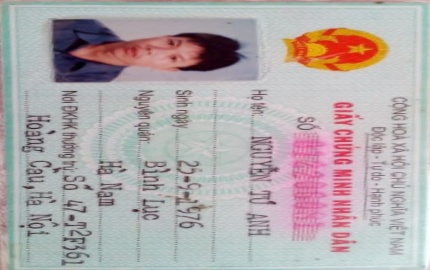 CỘNG HOÀ XÃ HỘI CHỦ NGHĨA VIỆT NAM
Độc lập - Tự do - Hạnh phúc
GIẤY CHỨNG MINH NHÂN DÂN
SỐ
Họ tên: NGUYỄN TÚ ANH
Sinh ngày 25-9-1976
Nguyên quán: Bình Lục
Hà Nam
Nơi ĐKHK thường trú: Số 47-
Hoàng Cầu, Hà Nội